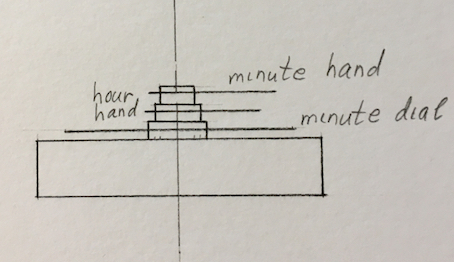 minute hand
hour
hand
minute dial